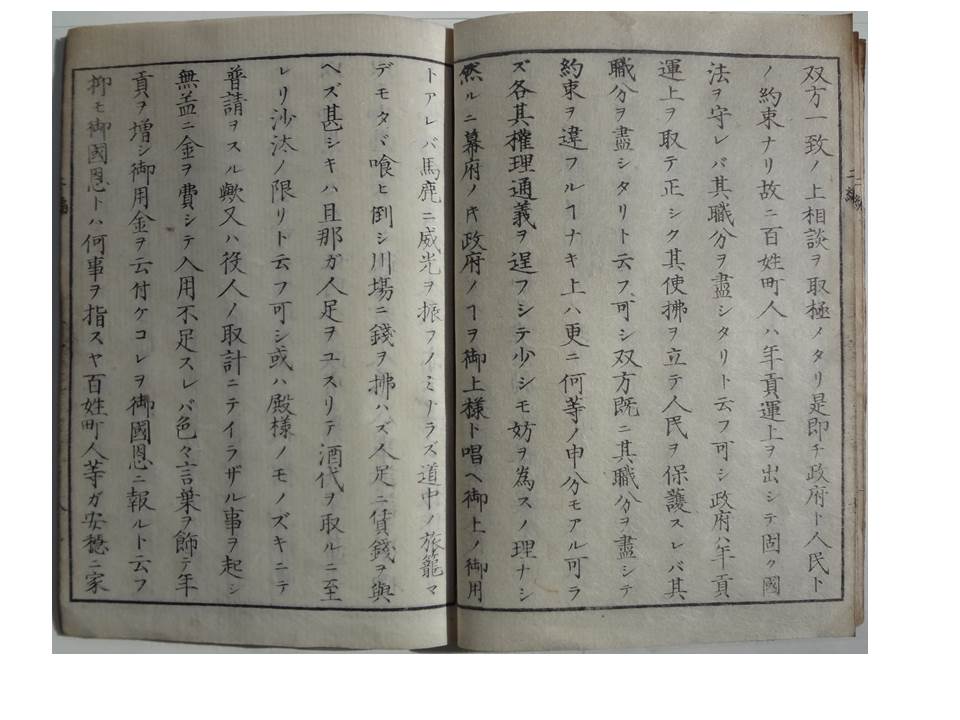 双方一致ノ上相談ヲ取極メタリ是即チ政府ト人民ト
ノ約束ナリ故ニ百姓町人ハ年貢運上ヲ出シテ固ク國
法ヲ守レバ其職分ヲ盡シタリト云フ可シ政府ハ年貢
運上ヲ取テ正シク其使拂ヲ立テ人民ヲ保護スレバ其
職分ヲ盡シタリト云フ可シ双方既ニ其職分ヲ盡シテ
約束ヲ違フルヿナキ上ハ更ニ何等ノ申分モアル可ラ
ズ各其權理通義ヲ逞フシテ少シモ妨ヲ為スノ理ナシ
然ルニ幕府ノ𪜈政府ノヿヲ御上様ト唱ヘ御上ノ御用
トアレバ馬鹿ニ威光ヲ振フノミナラズ道中ノ旅籠マ
デモタヾ喰ヒ倒シ川場ニ錢ヲ拂ハズ人足ニ賃錢ヲ與
ヘズ甚シキハ旦那ガ人足ヲユスリテ酒代ヲ取ルニ至
レリ沙汰ノ限リト云フ可シ或ハ殿様ノモノズキニテ
普請ヲスル歟又ハ役人ノ取計ニテイラザル事ヲ起シ
無益ニ金ヲ費シテ入用不足スレバ色々言葉ヲ飾テ年
貢ヲ増シ御用金ヲ云付ケコレヲ御國恩ニ報ルト云フ
抑モ御國恩トハ何事ヲ指スヤ百姓町人等ガ安穏ニ家